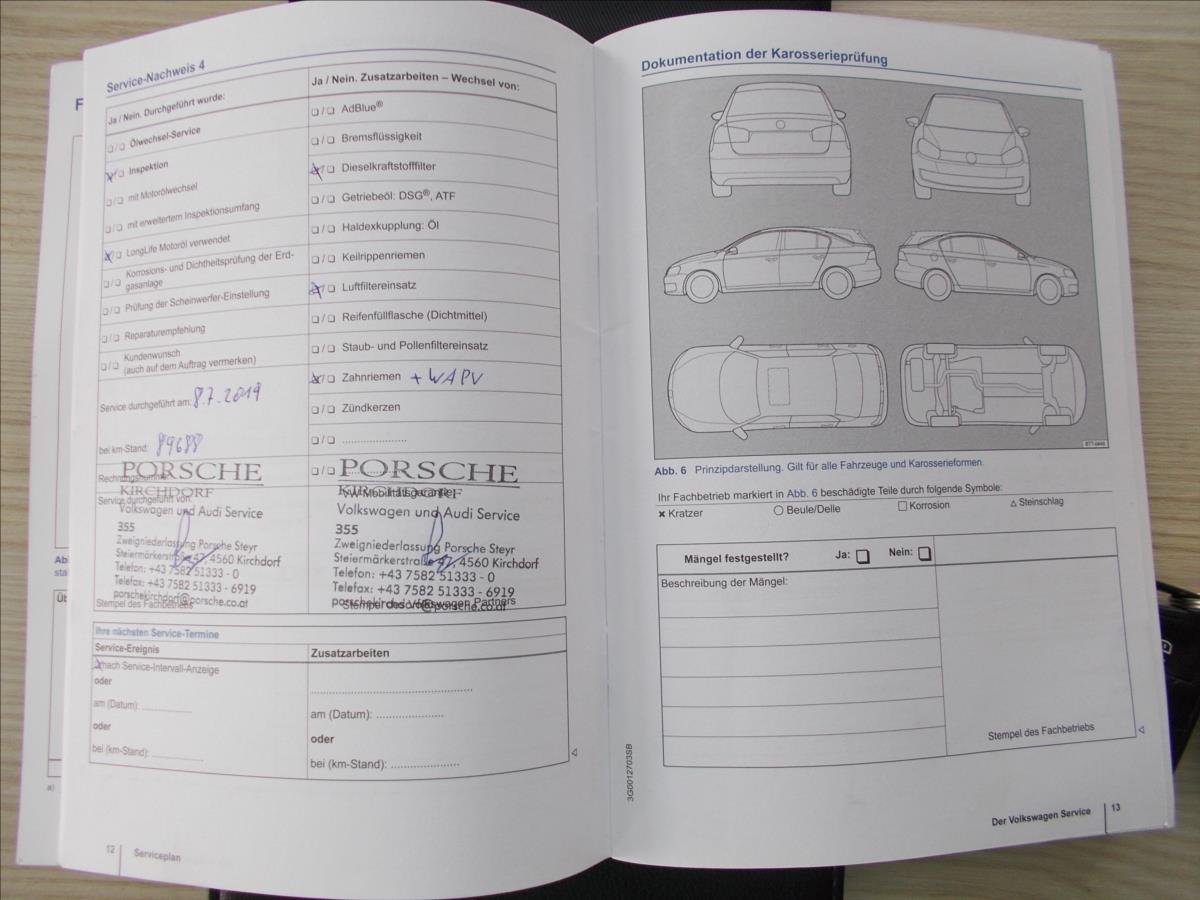 F
Service-Nachweis 4
Ja / Nein. Durchgeführt wurde:
❑ / ❑ Ölwechsel-Service
❑ / ❑ Inspektion
❑ / ❑ mit Motorölwechsel
❑ / ❑ mit erweitertem Inspektionsumfang
❑ / ❑ LongLife Motoröl verwendet
❑ / ❑ Korrosions- und Dichtheitsprüfung der Erd-
gasanlage
❑ / ❑ Prüfung der Scheinwerfer-Einstellung
❑ / ❑ Reparaturempfehlung
❑ / ❑ Kundenwunsch
(auch auf dem Auftrag vermerken)
Service durchgeführt am: 8.7.2019
bei km-Stand: 89688
Rechnungsnummer
PORSCHE
KIRCHDORF
Service durchgeführt von:
Volkswagen und Audi Service
355
Zweigniederlassung Porsche Steyr
Steiermärkerstraße 47, 4560 Kirchdorf
Telefon: +43 7582 51333 - 0
Telefax: +43 7582 51333 - 6919
porschekirchdorf@porsche.co.at
Stempel des Fachbetriebs
Ja / Nein. Zusatzarbeiten – Wechsel von:
❑ / ❑ AdBlue®
❑ / ❑ Bremsflüssigkeit
❑ / ❑ Dieselkraftstofffilter
❑ / ❑ Getriebeöl: DSG®, ATF
❑ / ❑ Haldexkupplung: Öl
❑ / ❑ Keilrippenriemen
❑ / ❑ Luftfiltereinsatz
❑ / ❑ Reifenfüllflasche (Dichtmittel)
❑ / ❑ Staub- und Pollenfiltereinsatz
❑ / ❑ Zahnriemen + WAPU
❑ / ❑ Zündkerzen
❑ / ❑ .....................
❑ / ❑ PORSCHE
KIRCHDORF
VW-Mobilitätsgarantie
Volkswagen und Audi Service
355
Zweigniederlassung Porsche Steyr
Steiermärkerstraße 47, 4560 Kirchdorf
Telefon: +43 7582 51333 - 0
Telefax: +43 7582 51333 - 6919
porschekirchdorf@porsche.co.at
Stempel des Volkswagen Partners
Ihre nächsten Service-Termine
Service-Ereignis
nach Service-Intervall-Anzeige
oder
am (Datum): ..................
oder
bei (km-Stand): ..................
Zusatzarbeiten
..................................................
am (Datum): .....................
oder
bei (km-Stand): .....................
a)
12 Serviceplan
Dokumentation der Karosserieprüfung
Abb. 6 Prinzipdarstellung. Gilt für alle Fahrzeuge und Karosserieformen.
Ihr Fachbetrieb markiert in Abb. 6 beschädigte Teile durch folgende Symbole:
✖ Kratzer ○ Beule/Delle □ Korrosion △ Steinschlag
Mängel festgestellt? Ja: ❑ Nein: ❑
Beschreibung der Mängel:
Stempel des Fachbetriebs
3G0012703SB
Der Volkswagen Service 13